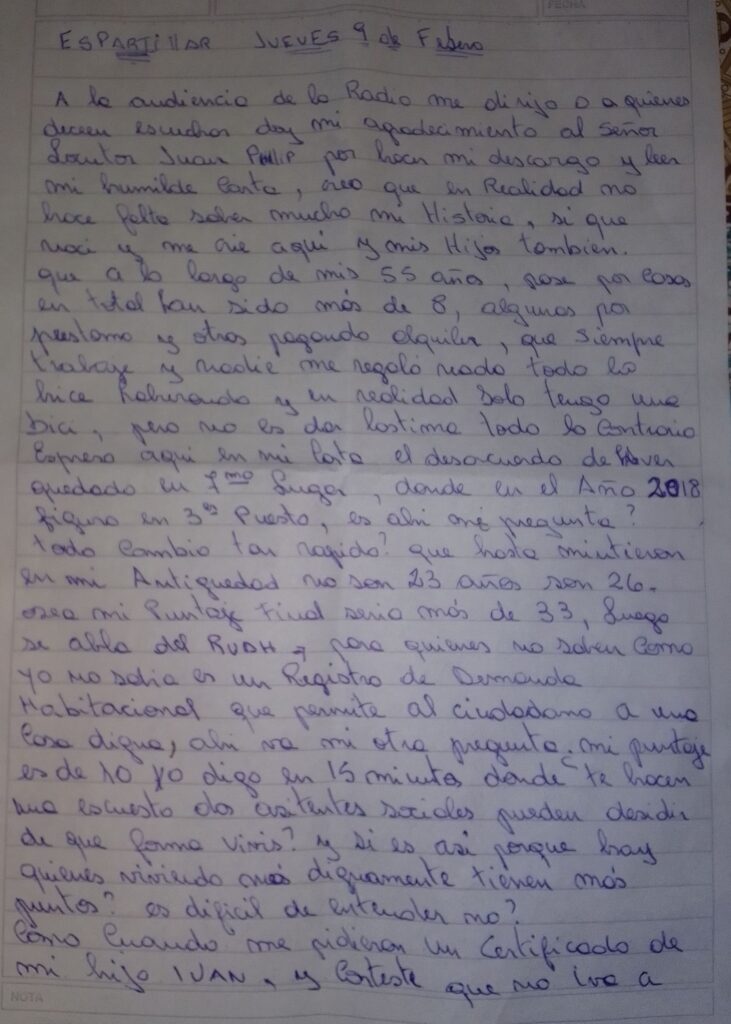 FECHA
ESPARTILLAR JUEVES 9 de Febrero
A la audiencia de la Radio me dirijo o a quienes
deceen escuchar doy mi agradecimiento al Señor
Locutor Juan PHILIP por hacer mi descargo y leer
mi humilde Carta, creo que en Realidad no
hace falta saber mucho mi Historia, si que
naci y me crie aqui y mis Hijos tambien.
que a lo largo de mis 55 años, pase por Casas
en total han sido más de 8, algunas por
prestamo y otras pagando alquiler, que siempre
trabaje y nadie me regaló nada todo lo
hice laburando y en realidad solo tengo una
bici, pero no es dar lastima todo lo Contrario
Expreso aqui en mi Carta el desacuerdo de Haver
quedado en 7mo Lugar, donde en el Año 2018
figuro en 3er Puesto, es ahi mi pregunta?
todo Cambio tan rapido? que hasta mintieron
en mi Antiguedad no son 23 años son 26.
osea mi Puntaje Final seria más de 33, Luego
se abla del RUDH, para quienes no saben Como
yo no sabia es un Registro de Demanda
Habitacional que permite al ciudadano a una
Casa digna, ahi va mi otra pregunta. mi puntaje
es de 10 yo digo en 15 minutos donde te hacen
una escuesta dos asitentes sociales pueden desidir
de que forma vivis? y si es asi porque hay
quienes viviendo más dignamente tienen más
puntos? es dificil de entender no?
Como Cuando me pidieron un Certificado de
mi hijo IVAN, y Conteste que no iva a
NOTA